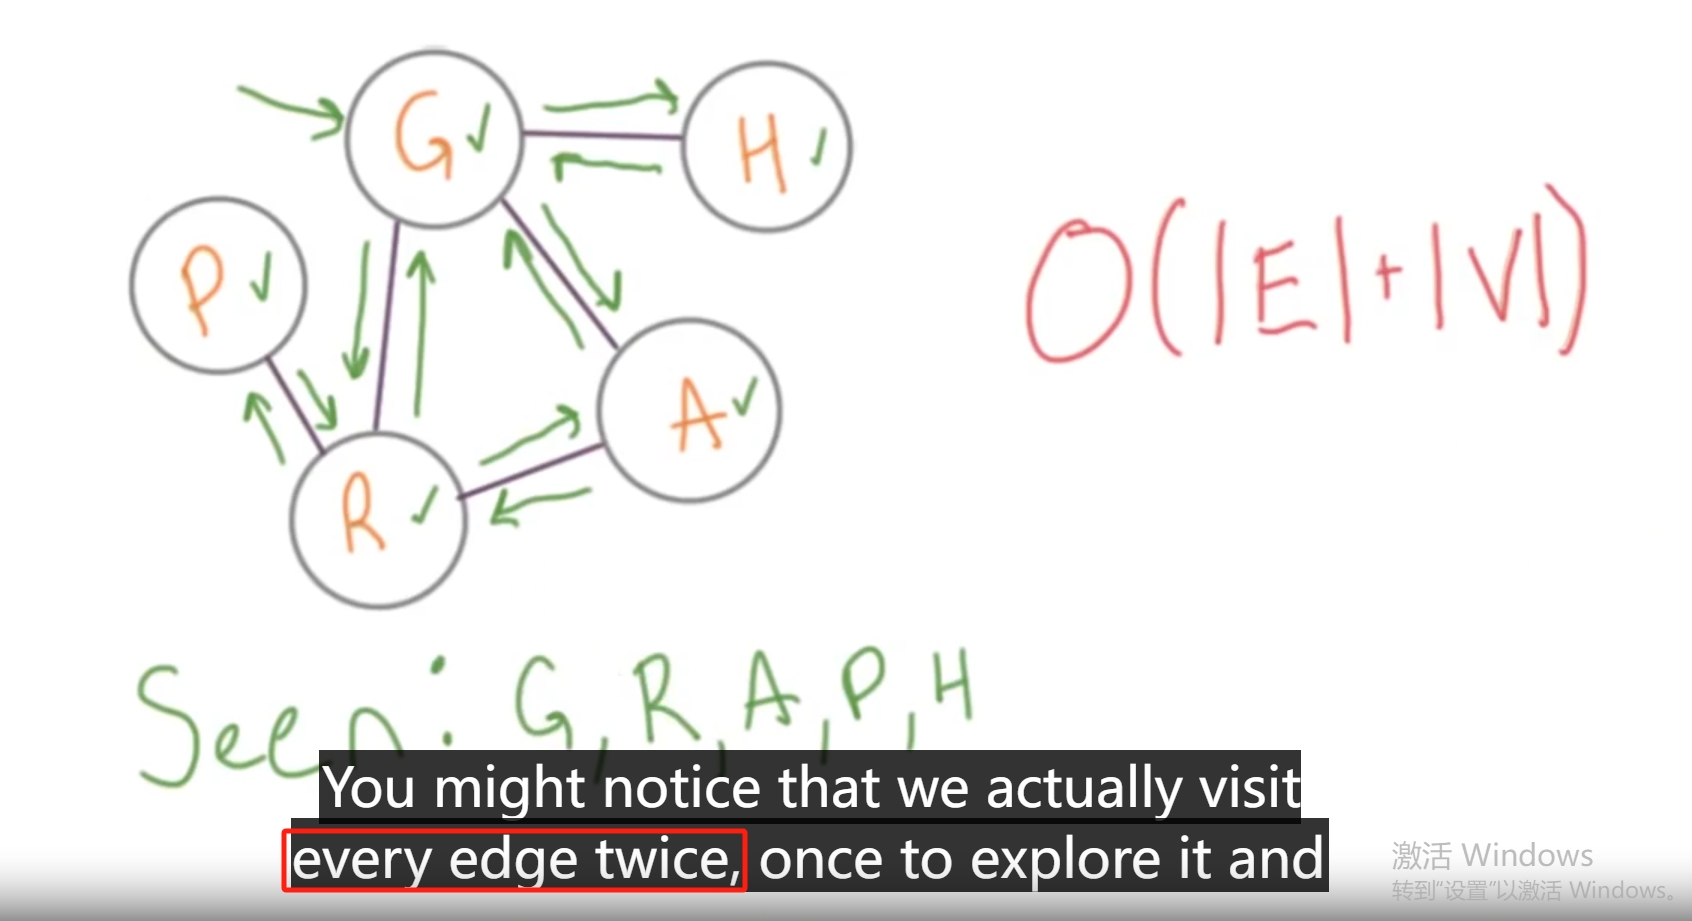 G✓
H✓
P✓
O(|E|+|V|)
A✓
R✓
Seen: G, R, A, P, H
You might notice that we actually visit
every edge twice, once to explore it and
激活 Windows
转到“设置”以激活 Windows。